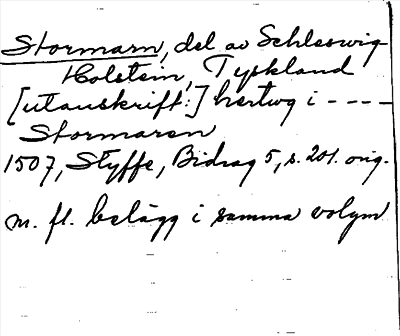 Stormarn, del av Schleswig-
Holstein, Tyskland
[utanskrift:] hertog i ----
Stormaren
1507, Styffe, Bidrag 5, s. 201. orig.
m. fl. belägg i samma volym